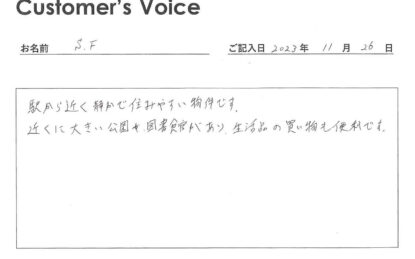 Customer's Voice
お名前 S.F ご記入日 2023年 11月 26日
駅から近く静かで住みやすい物件です。
近くに大きい公園や図書館があり、生活品の買い物も便利です。